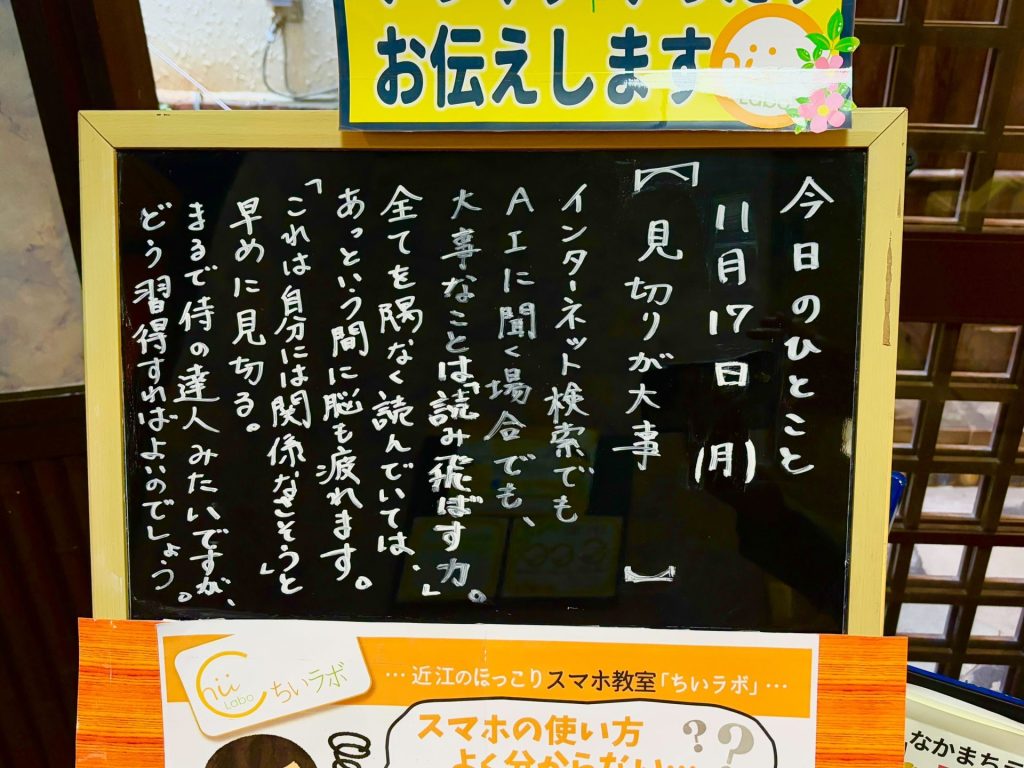 お伝えします
Labo
今日のひとこと
11月17日(月)
【見切りが大事】
インターネット検索でも
AIに聞く場合でも、
大事なことは「読み飛ばす力」。
全てを隅なく読んでいては、
あっという間に脳も疲れます。
「これは自分には関係なさそう」と
早めに見切る。
まるで侍の達人みたいですが、
どう習得すればよいのでしょう。
Chii
Labo
ちいラボ
…近江のほっこりスマホ教室「ちいラボ」…
スマホの使い方
よく分からない…
??
なかまち